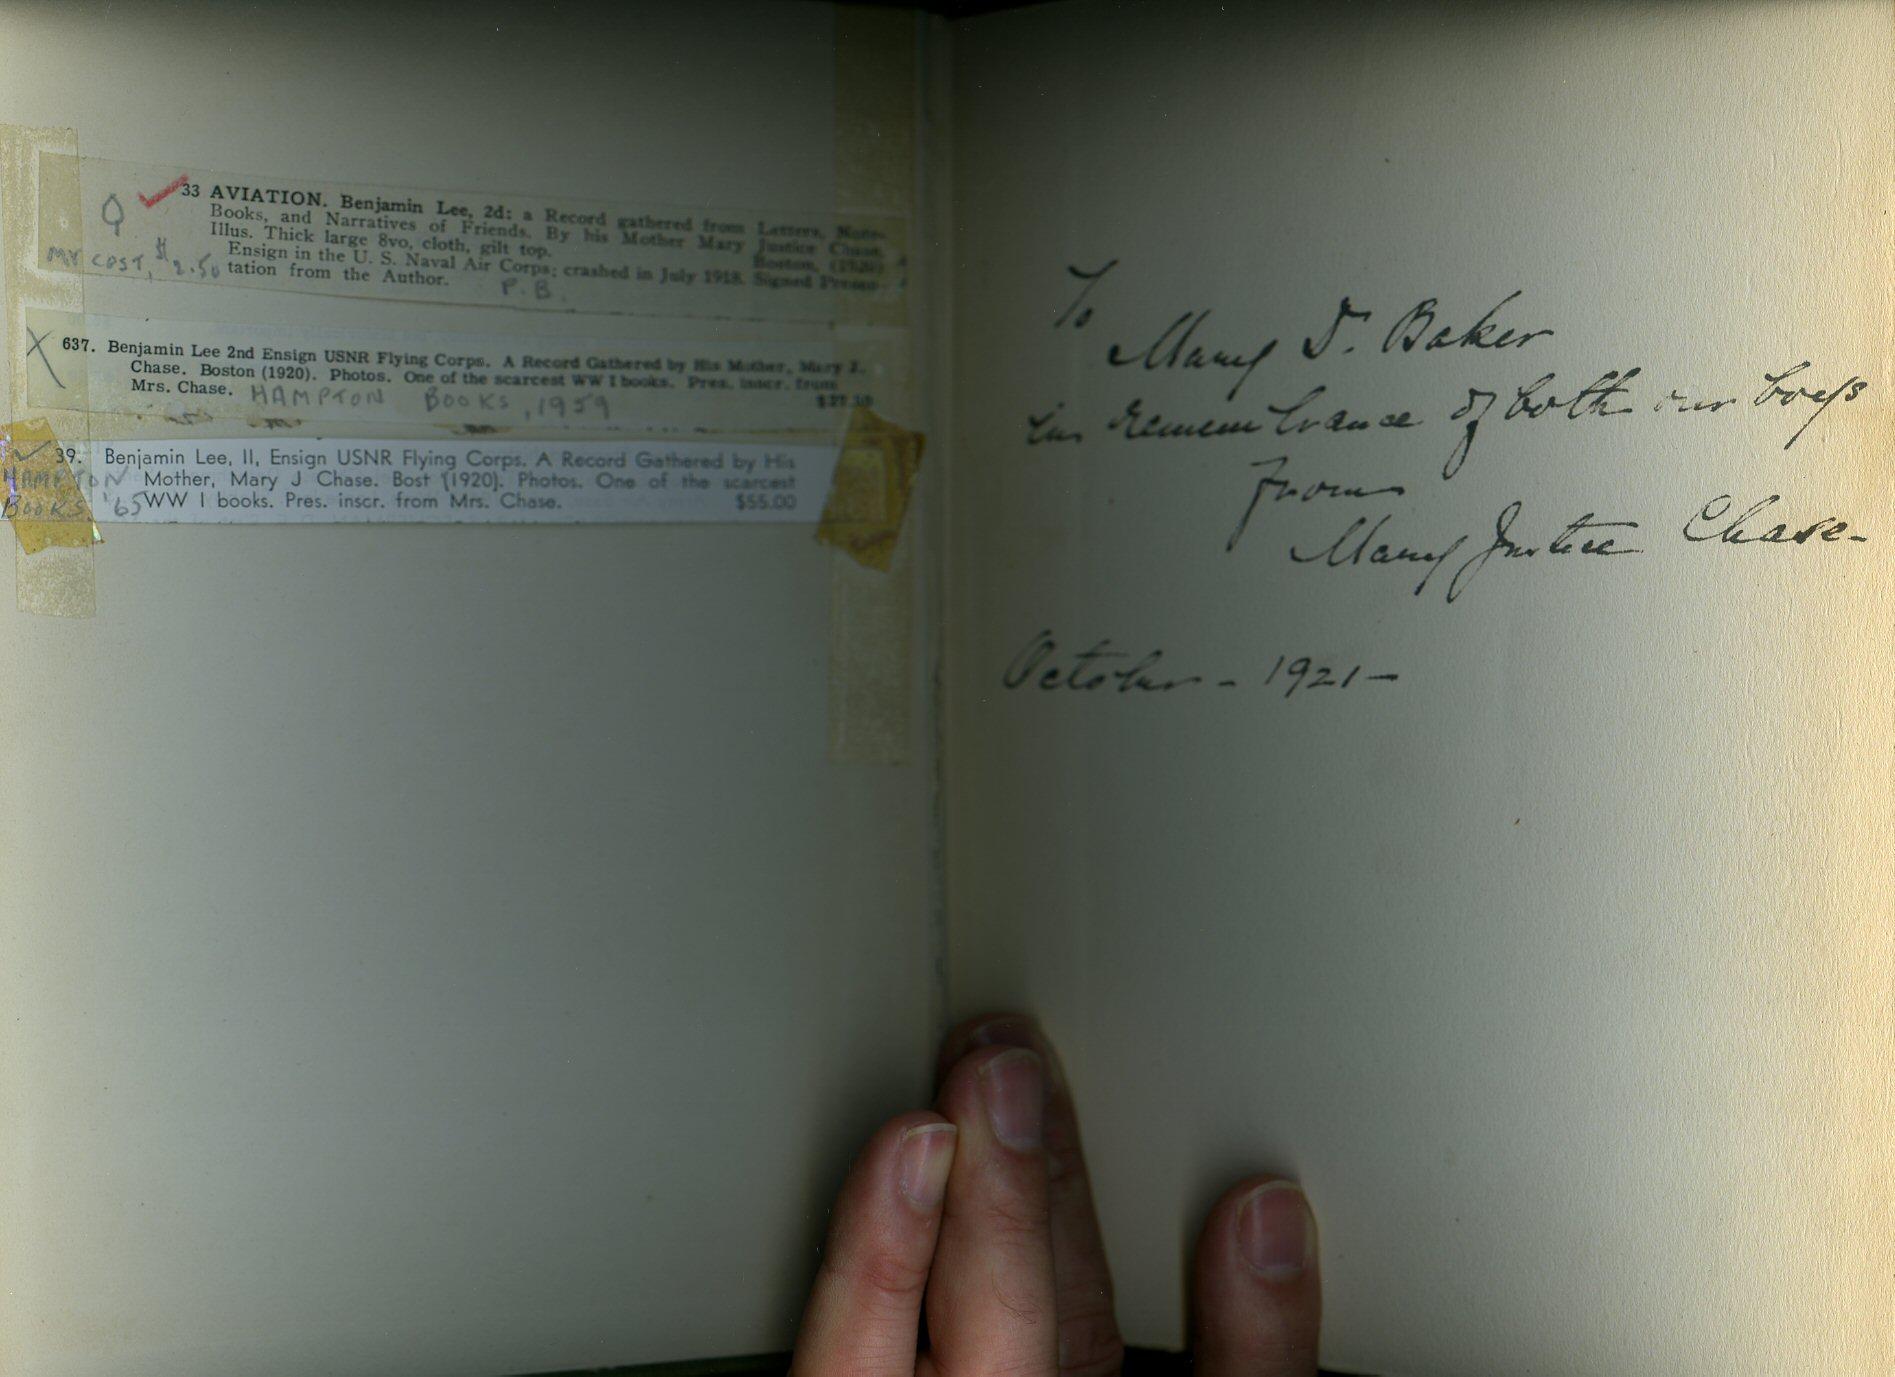 Q
33 AVIATION. Benjamin Lee, 2d: a Record gathered from Letters, Note-
Books, and Narratives of Friends. By his Mother Mary Justice Chase.
Illus. Thick large 8vo, cloth, gilt top. Boston, (1920)
Ensign in the U. S. Naval Air Corps; crashed in July 1918. Signed Presen-
tation from the Author.
MY COST, $2.50
P. B.
X
637. Benjamin Lee 2nd Ensign USNR Flying Corps. A Record Gathered by His Mother, Mary J.
Chase. Boston (1920). Photos. One of the scarcest WW I books. Pres. inscr. from
Mrs. Chase. $27.50
HAMPTON BOOKS, 1959
39. Benjamin Lee, II, Ensign USNR Flying Corps. A Record Gathered by His
Mother, Mary J Chase. Bost (1920). Photos. One of the scarcest
WW I books. Pres. inscr. from Mrs. Chase. $55.00
HAMPTON
BOOKS, '65
To
Mary D. Baker
in remembrance of both our boys
from
Mary Justice Chase-
October - 1921 -